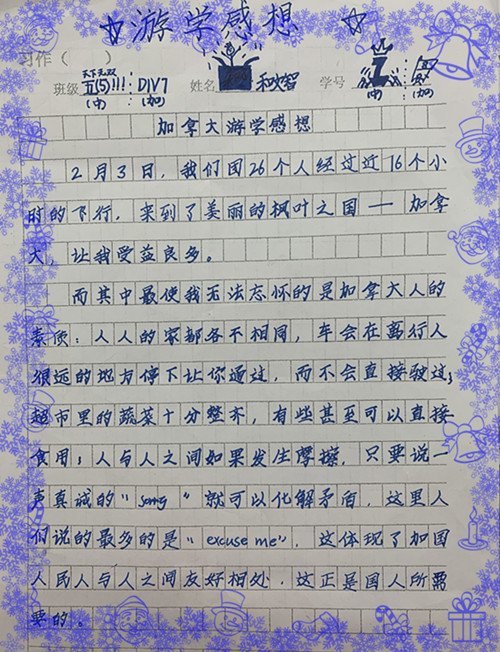 ☆游学感想☆
习作（ ）
天下无双
班级 五(5)!!! DIV7 姓名 和炏智 学号
(中) (加) (中) (加)
加拿大游学感想
2月3日，我们团26个人经过近16个小
时的飞行，来到了美丽的枫叶之国——加拿
大，让我受益良多。
而其中最使我无法忘怀的是加拿大人的
素质：人人的家都各不相同，车会在离行人
很远的地方停下让你通过，而不会直接驶过；
超市里的蔬菜十分整齐，有些甚至可以直接
食用；人与人之间如果发生摩擦，只要说一
声真诚的“sorry”就可以化解矛盾，这里人
们说的最多的是“excuse me”，这体现了加国
人民人与人之间友好相处，这正是国人所需
要的。